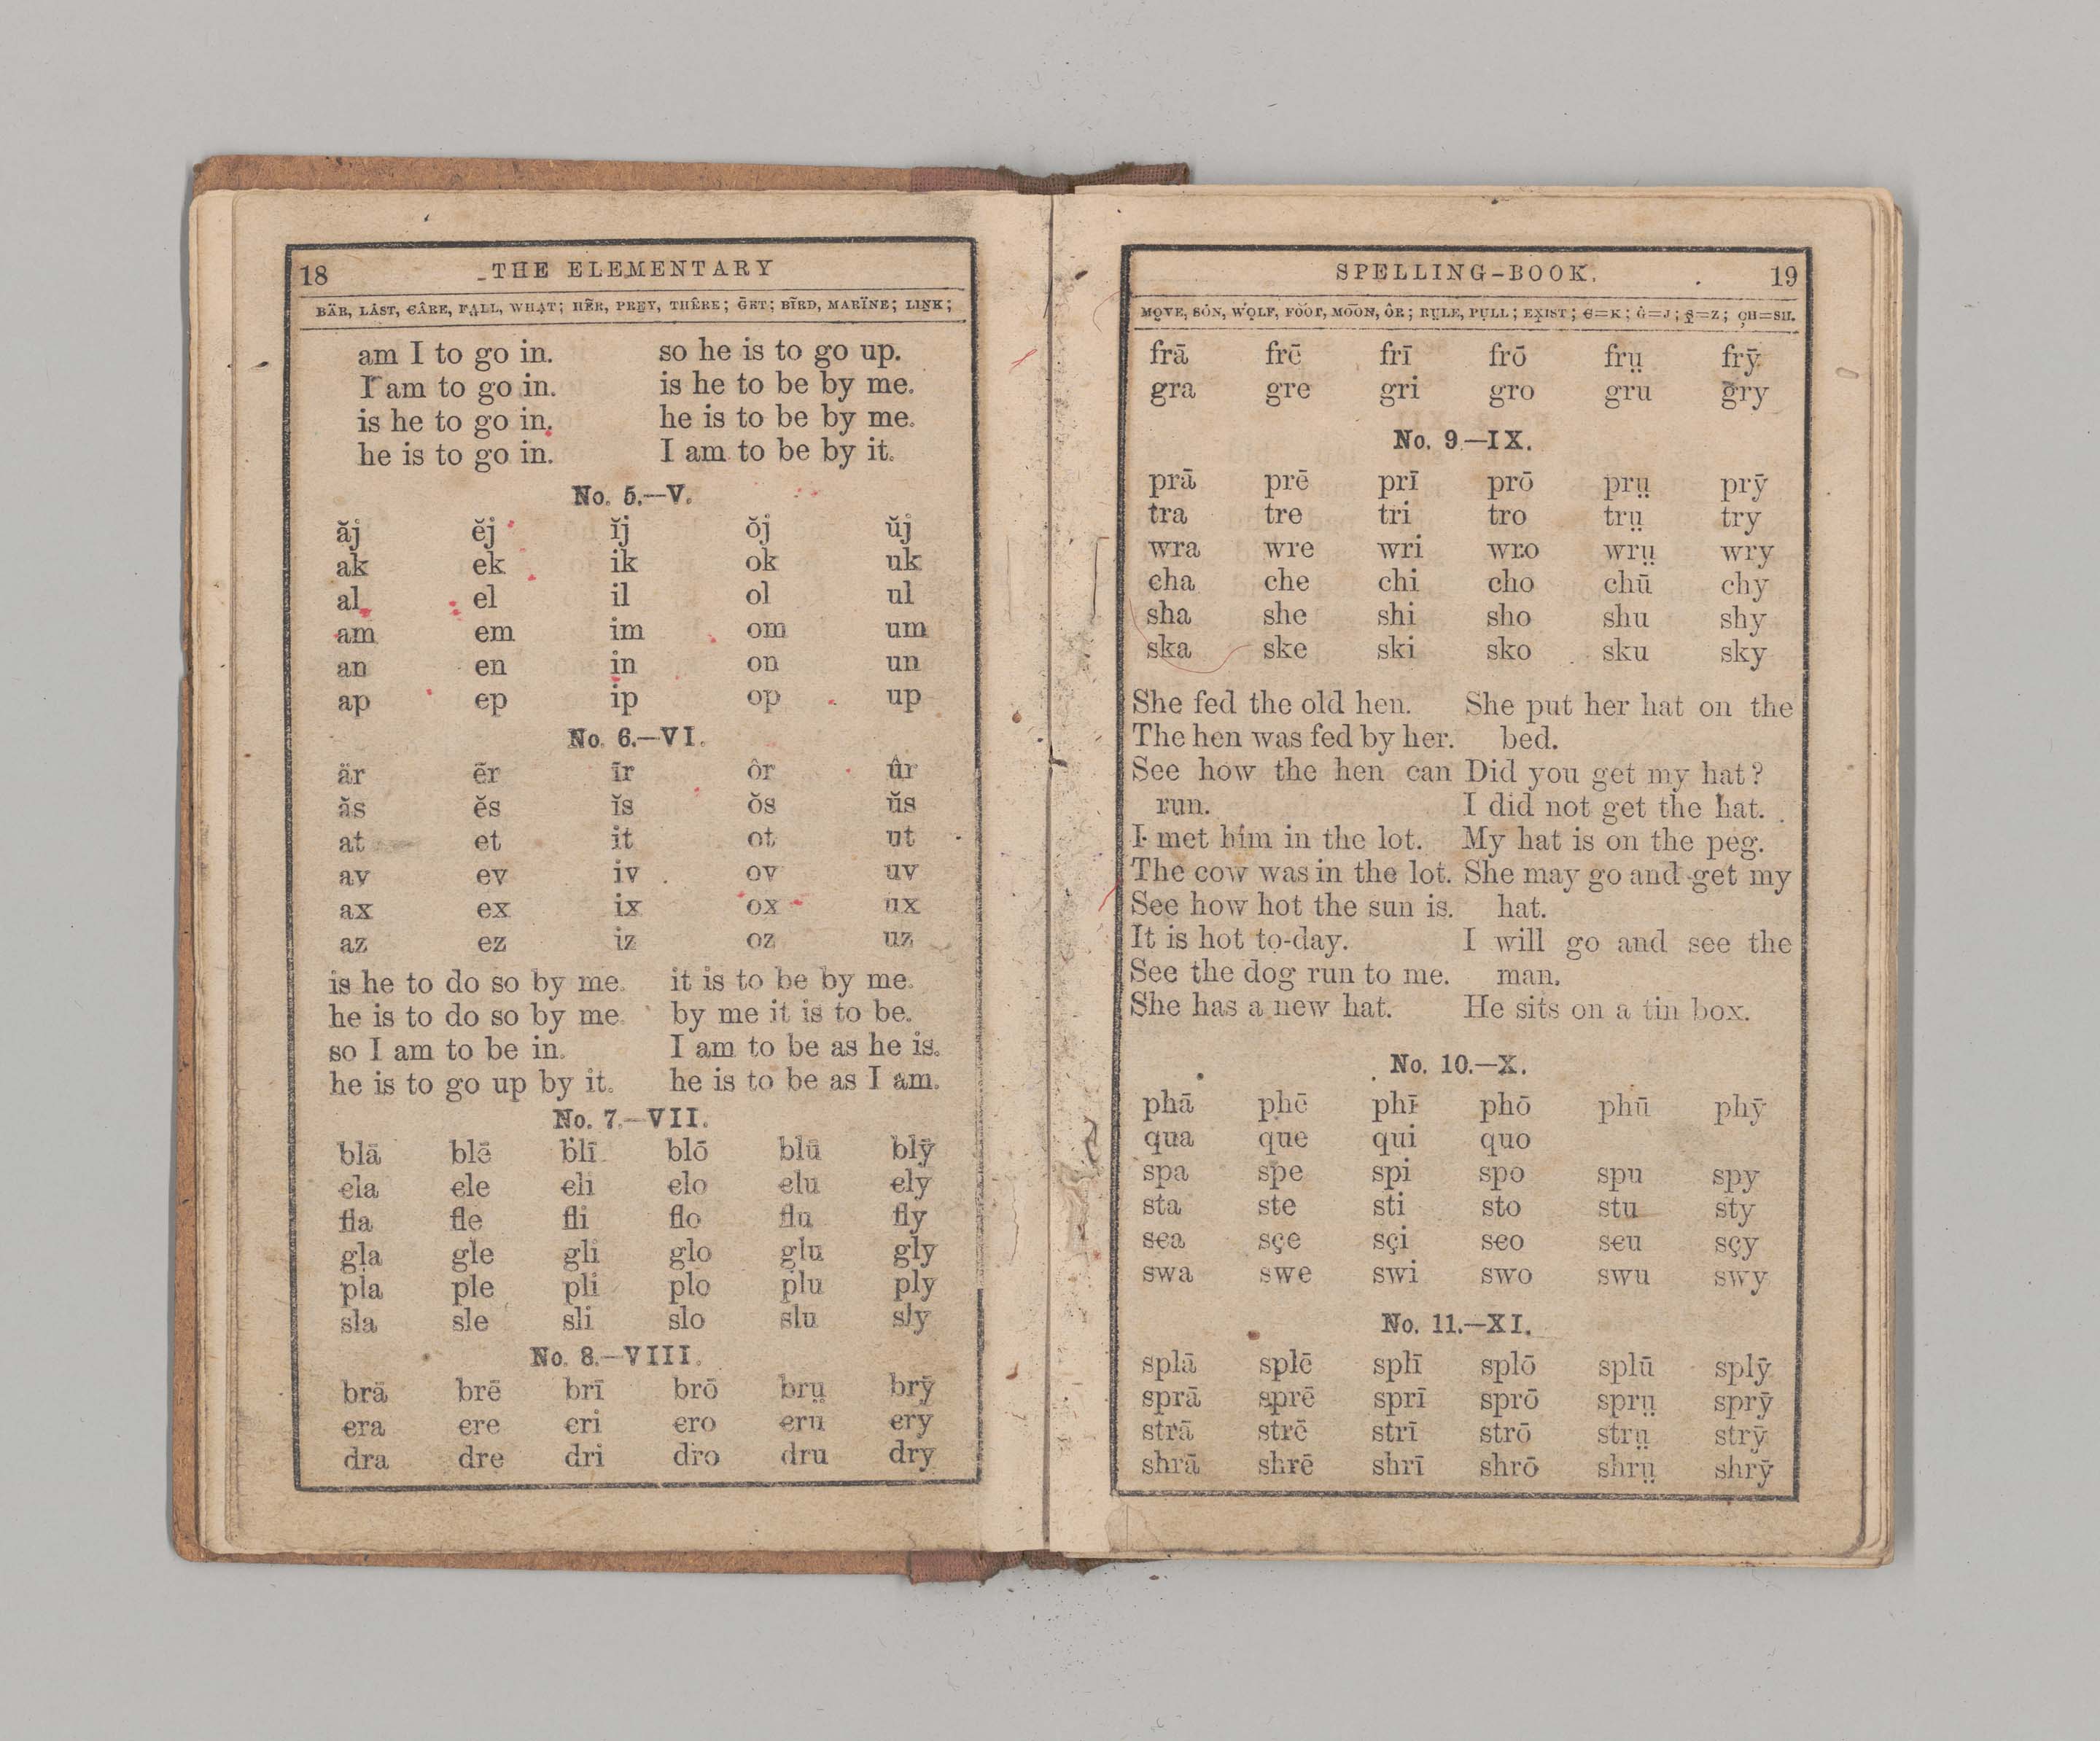 18 THE ELEMENTARY
BÄR, LÅST, ЄÂRE, FA̤LL, WHA̤T; HẼR, PRE̱Y, THÊRE; ḠET; BĨRD, MARÏNE; LIṈK;
am I to go in. so he is to go up.
I am to go in. is he to be by me.
is he to go in. he is to be by me.
he is to go in. I am to be by it.
No. 5.—V.
ăj ĕj ĭj ŏj ŭj
ak ek ik ok uk
al el il ol ul
am em im om um
an en in on un
ap ep ip op up
No. 6.—VI.
är ẽr ĩr ôr ûr
ăs ĕs ĭs ŏs ŭs
at et it ot ut
av ev iv ov uv
ax ex ix ox ux
az ez iz oz uz
is he to do so by me. it is to be by me.
he is to do so by me. by me it is to be.
so I am to be in. I am to be as he is.
he is to go up by it. he is to be as I am.
No. 7.—VII.
blā blē blī blō blū blȳ
єla єle єli єlo єlu єly
fla fle fli flo flu fly
gla gle gli glo glu gly
pla ple pli plo plu ply
sla sle sli slo slu sly
No. 8.—VIII.
brā brē brī brō brṳ brȳ
єra єre єri єro єru єry
dra dre dri dro dru dry
SPELLING-BOOK. 19
MO̤VE, SȮN, WO̤LF, FŎŎT, MŌŌN, ÔR; RṲLE, PṲLL; EX̱IST; Є=K; Ġ=J; S̱=Z; ÇH=SH.
frā frē frī frō frṳ frȳ
gra gre gri gro gru gry
No. 9.—IX.
prā prē prī prō prṳ prȳ
tra tre tri tro trṳ try
wra wre wri wro wrṳ wry
cha che chi cho chū chy
sha she shi sho shu shy
ska ske ski sko sku sky
She fed the old hen.
The hen was fed by her.
See how the hen can
run.
I met him in the lot.
The cow was in the lot.
See how hot the sun is.
It is hot to-day.
See the dog run to me.
She has a new hat.
She put her hat on the
bed.
Did you get my hat?
I did not get the hat.
My hat is on the peg.
She may go and get my
hat.
I will go and see the
man.
He sits on a tin box.
No. 10.—X.
phā phē phī phō phū phȳ
qua que qui quo
spa spe spi spo spu spy
sta ste sti sto stu sty
sєa sçe sçi sєo sєu sçy
swa swe swi swo swu swy
No. 11.—XI.
splā splē splī splō splū splȳ
sprā sprē sprī sprō sprṳ sprȳ
strā strē strī strō strṳ strȳ
shrā shrē shrī shrō shrṳ shrȳ